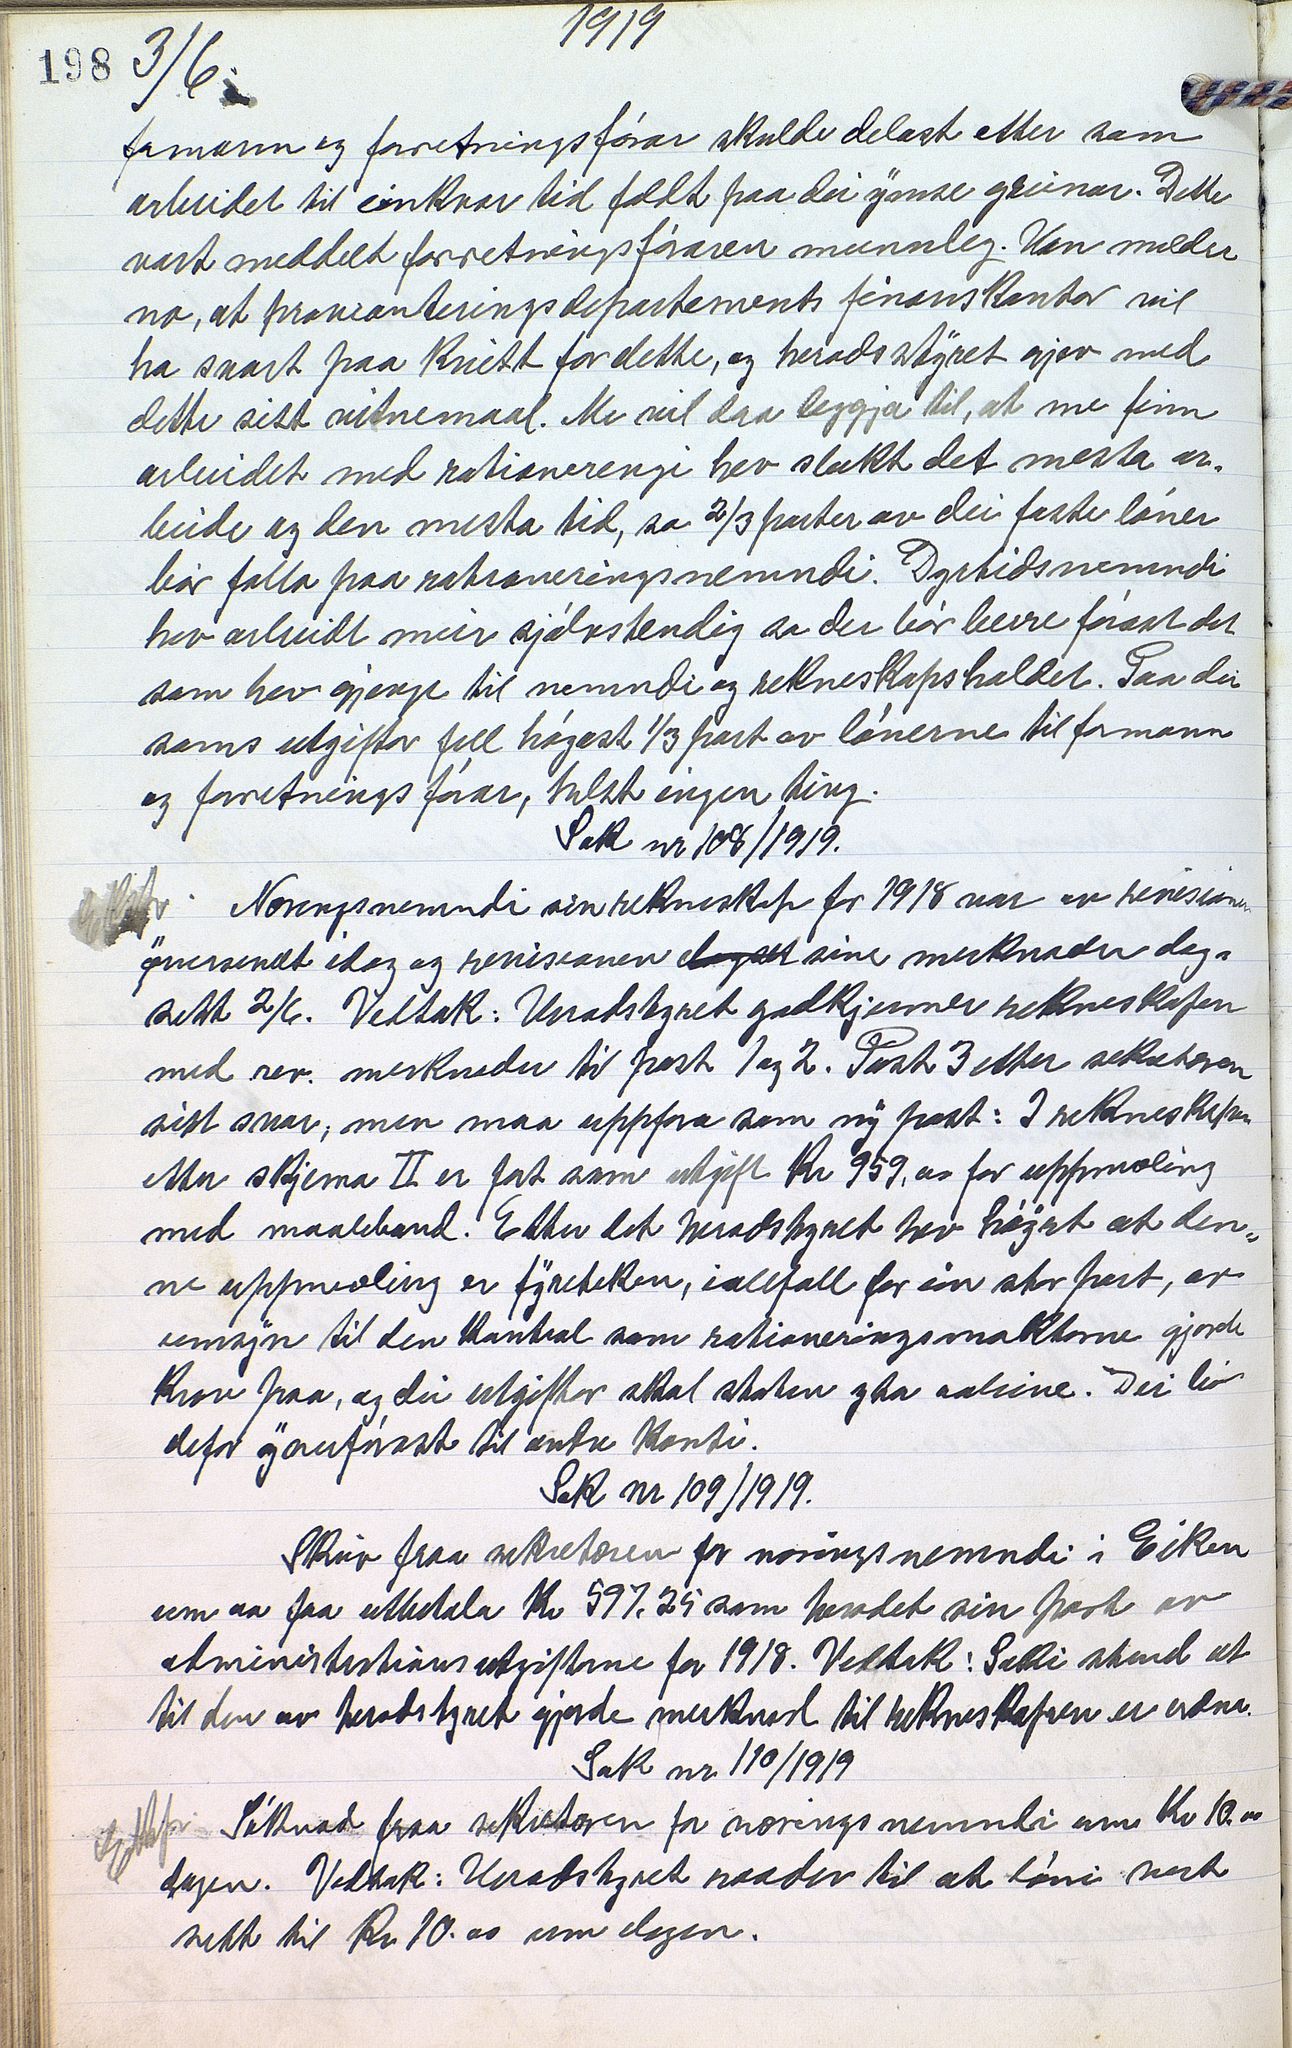 1919
198 3/6.
formann og forretningsförar skulde delast etter som
arbeidet til einkvar tid faldt paa dei ymse greinar. Dette
vart meddelt forretningsföraren munnleg. Han melder
no, at provianteringsdepartements finanskontor vil
ha svart paa kvitt for dette, og heradsstyret gjev med
dette sitt vitnemaal. Me vil daa leggja til, at me finn
arbeidet med rationeringi hev slukt det mesta ar-
beide og den mesta tid, so 2/3 parter av dei faste löner
bör falla paa rationeringsnemndi. Dyrtidsnemndi
hev arbeidt meir sjölvstendig so der bör berre förast det
som hev gjenge til nemndi og rekneskapshaldet. Paa dei
soms utgiftor fell högast 1/3 part av lönerne til formann
og forretningsförar, helst ingen ting.
Sak nr 108/1919.
Næringsnemndi sin rekneskap for 1918 var av revisionen
översendt idag og revisionen sine merknader dag-
sett 2/6. Vedtak: Heradstyret godkjenner rekneskapen
med rev. merknader til post 1 og 2. Post 3 etter sekretæren
sitt svar, men maa uppföra som ny post: I rekneskapen
etter skjema II er fört som utgift Kr 959,00 for uppmæling
med maaleband. Etter det heradstyret hev högrt at den-
ne uppmæling er fyreteken, iallfall for ein stor part, av
umsyn til den kontrol som rationeringsmaktorne gjorde
krav paa, og dei utgiftor skal staten yta aaleine. Dei bör
defor överförast til andre konti.
Sak nr 109/1919.
Skriv fraa sekretæren for næringsnemndi i Eiken
um aa faa utbetala Kr 597.25 som heradet sin part av
administrationsutgifterne for 1918. Vedtak: Saki stend ut
til den av heradstyret gjorde merknad til rekneskapen er ordna.
Sak nr 110/1919
Söknad fraa sekretæren for næringsnemndi um Kr 10.00
dagen. Vedtak: Heradstyret raader til at löni vert
sett til Kr 10.00 um dagen.